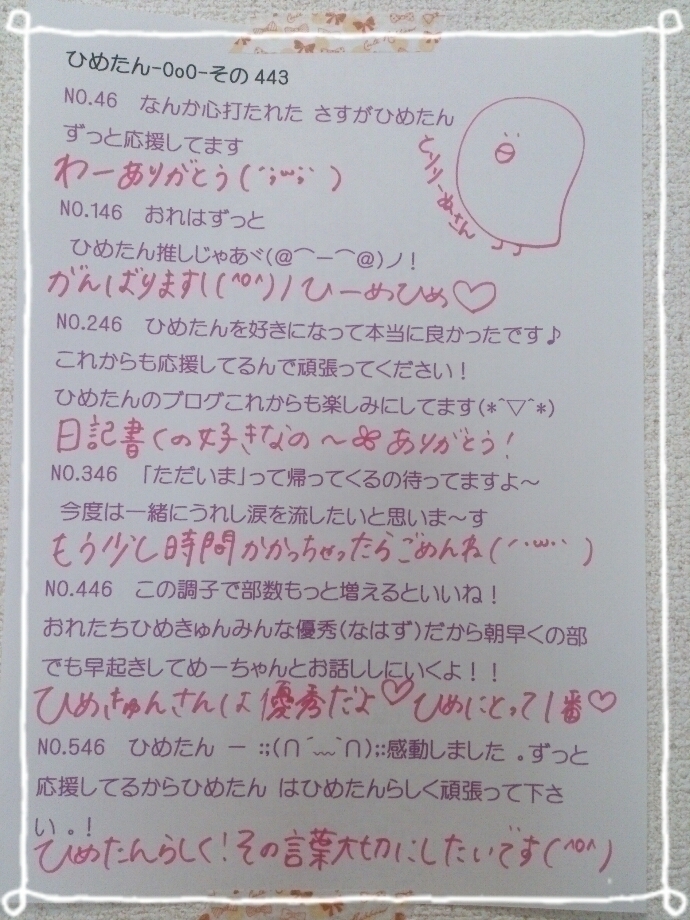 ひめたん-OoO-その443
NO.46　なんか心打たれた さすがひめたん
ずっと応援してます
わーありがとう(´；ω；｀)
NO.146　おれはずっと
ひめたん推しじゃあヾ(@⌒ー⌒@)ノ！
がんばります！(^o^)ノひーめひめ♡
NO.246　ひめたんを好きになって本当に良かったです♪
これからも応援してるんで頑張ってください！
ひめたんのブログこれからも楽しみにしてます(*^▽^*)
日記書くの好きなの〜 ありがとう！
NO.346　「ただいま」って帰ってくるの待ってますよ～
今度は一緒にうれし涙を流したいと思いま～す
もう少し時間かかっちゃったらごめんね(´･ω･｀)
NO.446　この調子で部数もっと増えるといいね！
おれたちひめきゅんみんな優秀(なはず)だから朝早くの部
でも早起きしてめーちゃんとお話ししにいくよ！！
ひめきゅんさんは優秀だよ♡ひめにとって1番♡
NO.546　ひめたん － :;(∩´﹏`∩);:感動しました 。ずっと
応援してるからひめたん はひめたんらしく頑張って下さ
い 。！
ひめたんらしく！その言葉大切にしたいです(^o^)